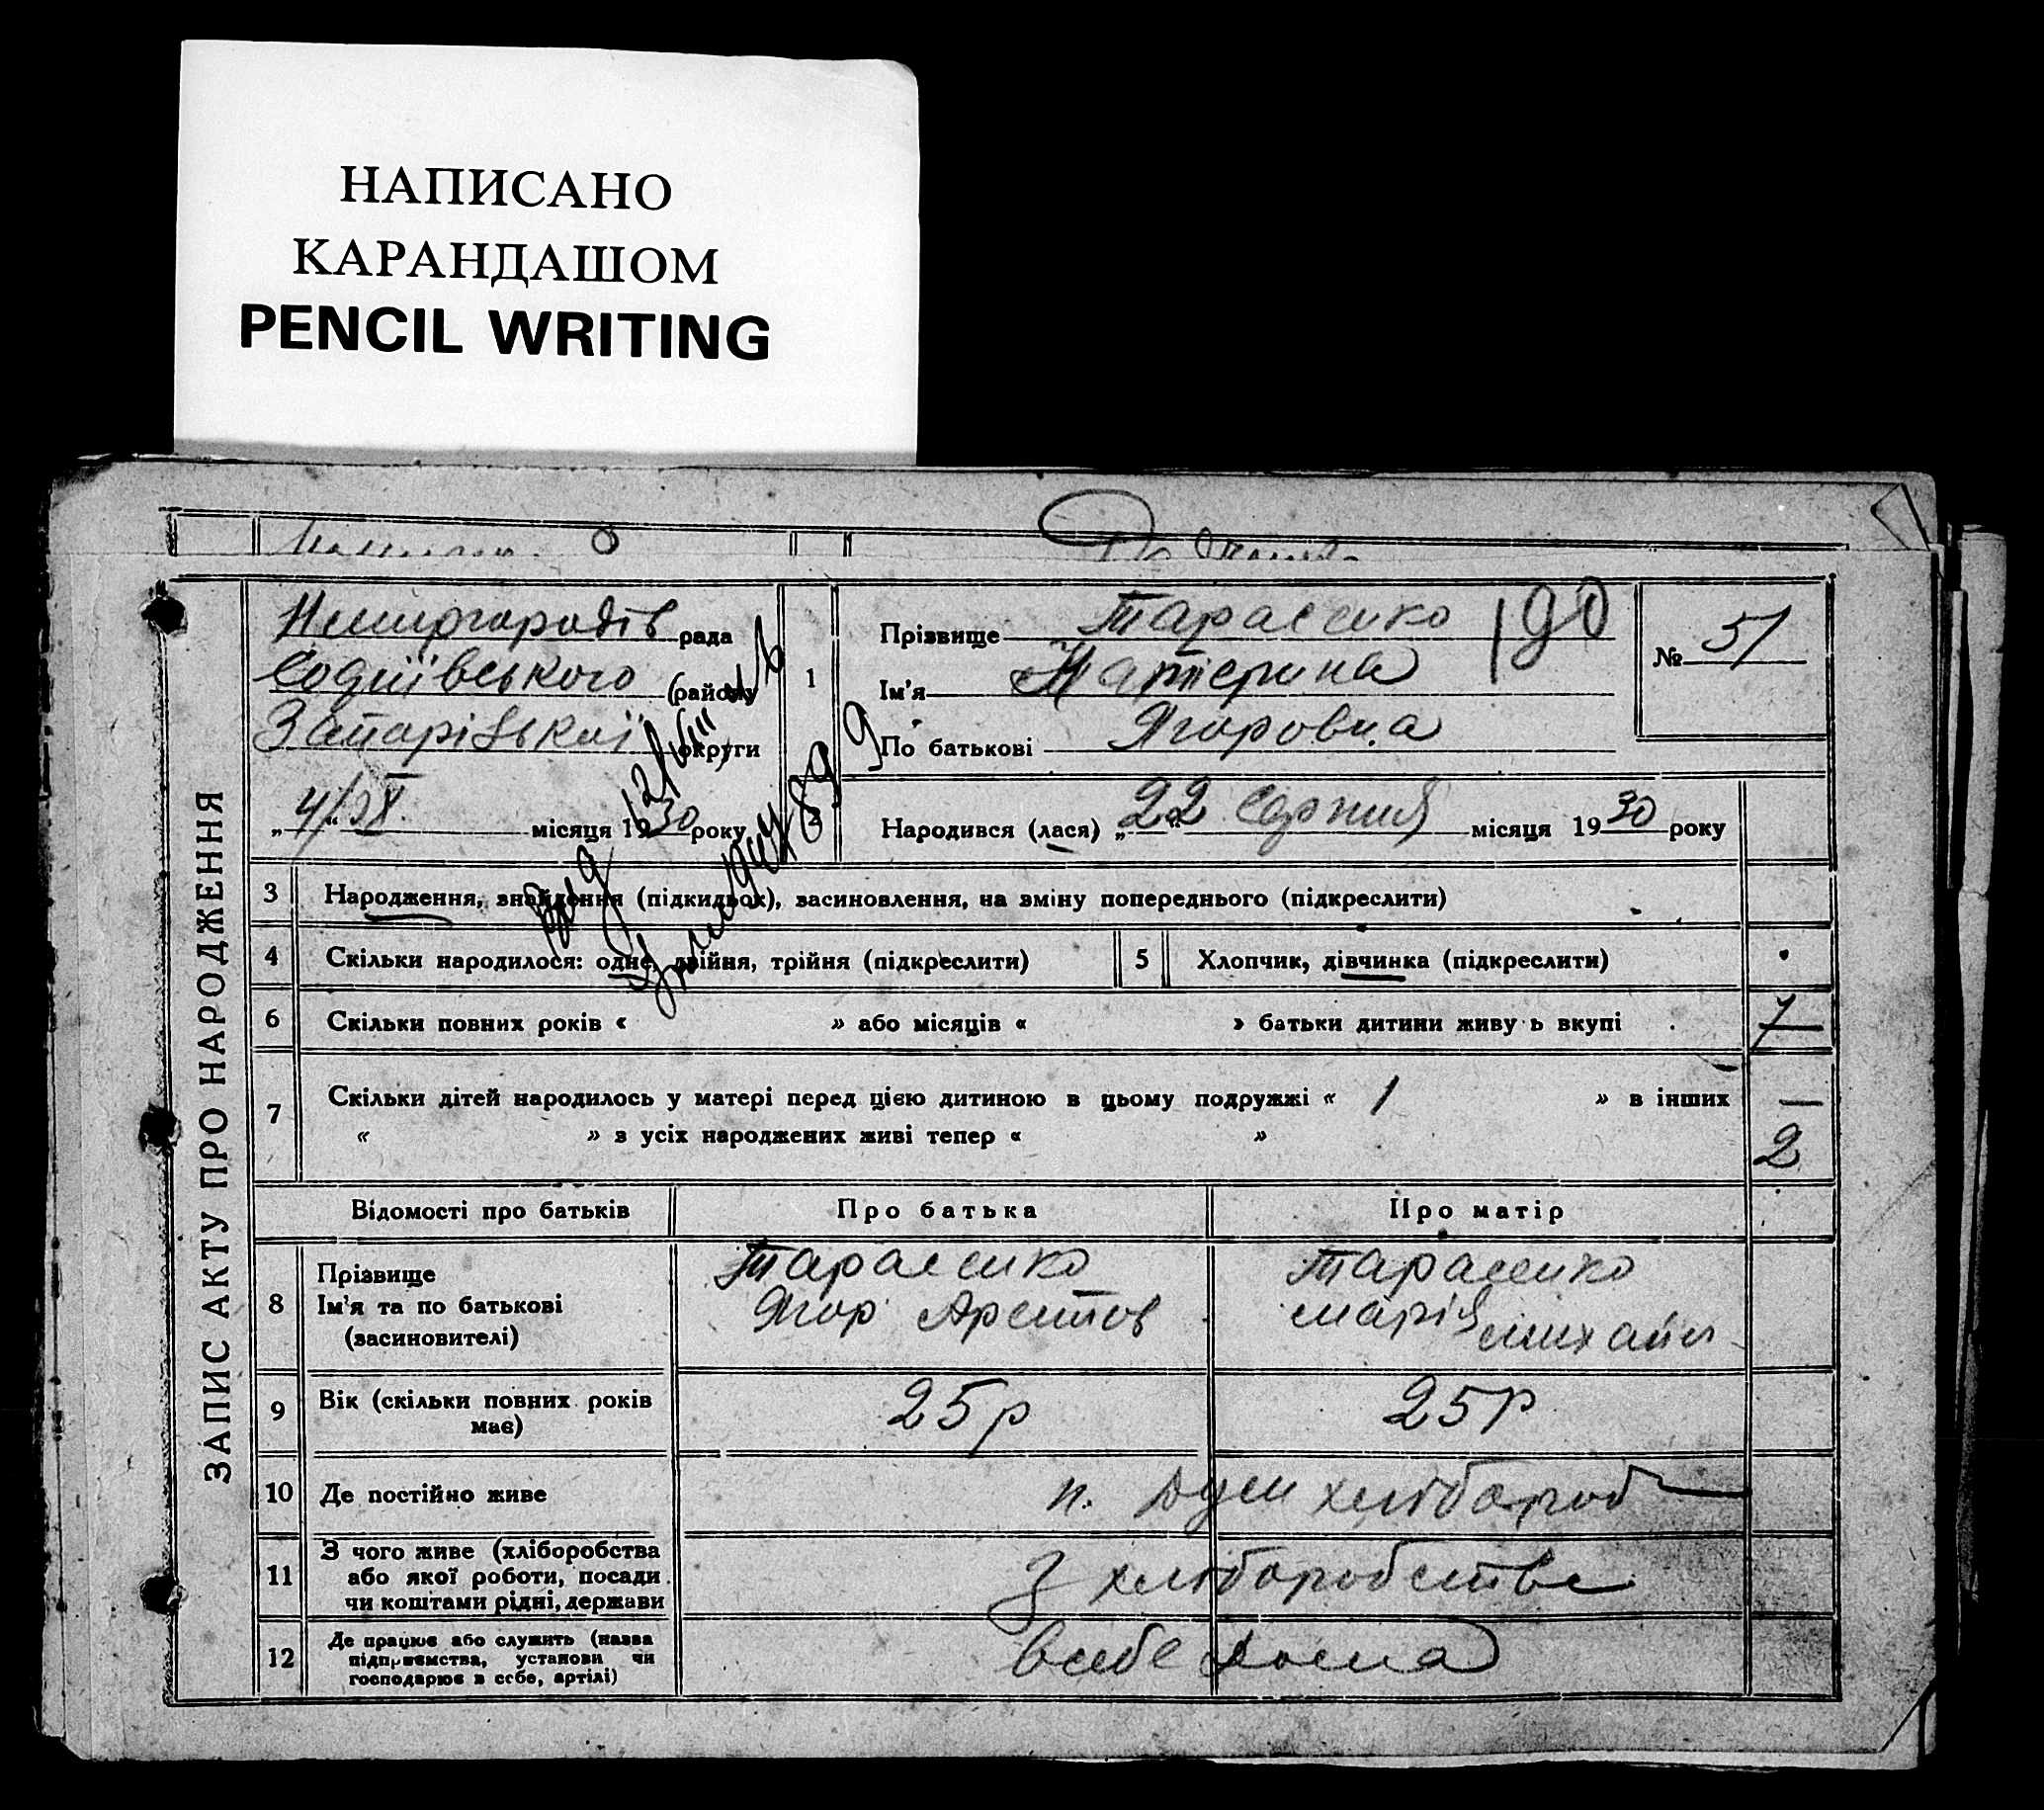 НАПИСАНО
КАРАНДАШОМ
PENCIL WRITING
ЗАПИС АКТУ ПРО НАРОДЖЕННЯ
рада
Софіївського району
Запорізької округи
„4/ІХ місяця 1930 року
1
Прізвище Тарасенко 190
Ім'я Катерина
По батькові Ягоровна
№ 51
2
Народився (лася) „22“ Серпня місяця 1930 року
3 Народження, знайдення (підкидьок), засиновлення, на зміну попереднього (підкреслити)
4 Скільки народилося: одне, двійня, трійня (підкреслити) 5 Хлопчик, дівчинка (підкреслити)
6 Скільки повних років « » або місяців « » батьки дитини живуть вкупі
7 Скільки дітей народилось у матері перед цією дитиною в цьому подружжі « 1 » в інших —
« » з усіх народжених живі тепер « » 2
Відомості про батьків Про батька Про матір
8 Прізвище Тарасенко Тарасенко
Ім'я та по батькові Ягор Марія
(засиновителі) Михайл
9 Вік (скільки повних років має) 25 р 25 р
10 Де постійно живе п. хлібороб
11 З чого живе (хліборобства або якої роботи, посади чи коштами рідні, держави З хліборобства
12 Де працює або служить (назва підприємства, установи чи господарює в себе, артілі) в себе дома